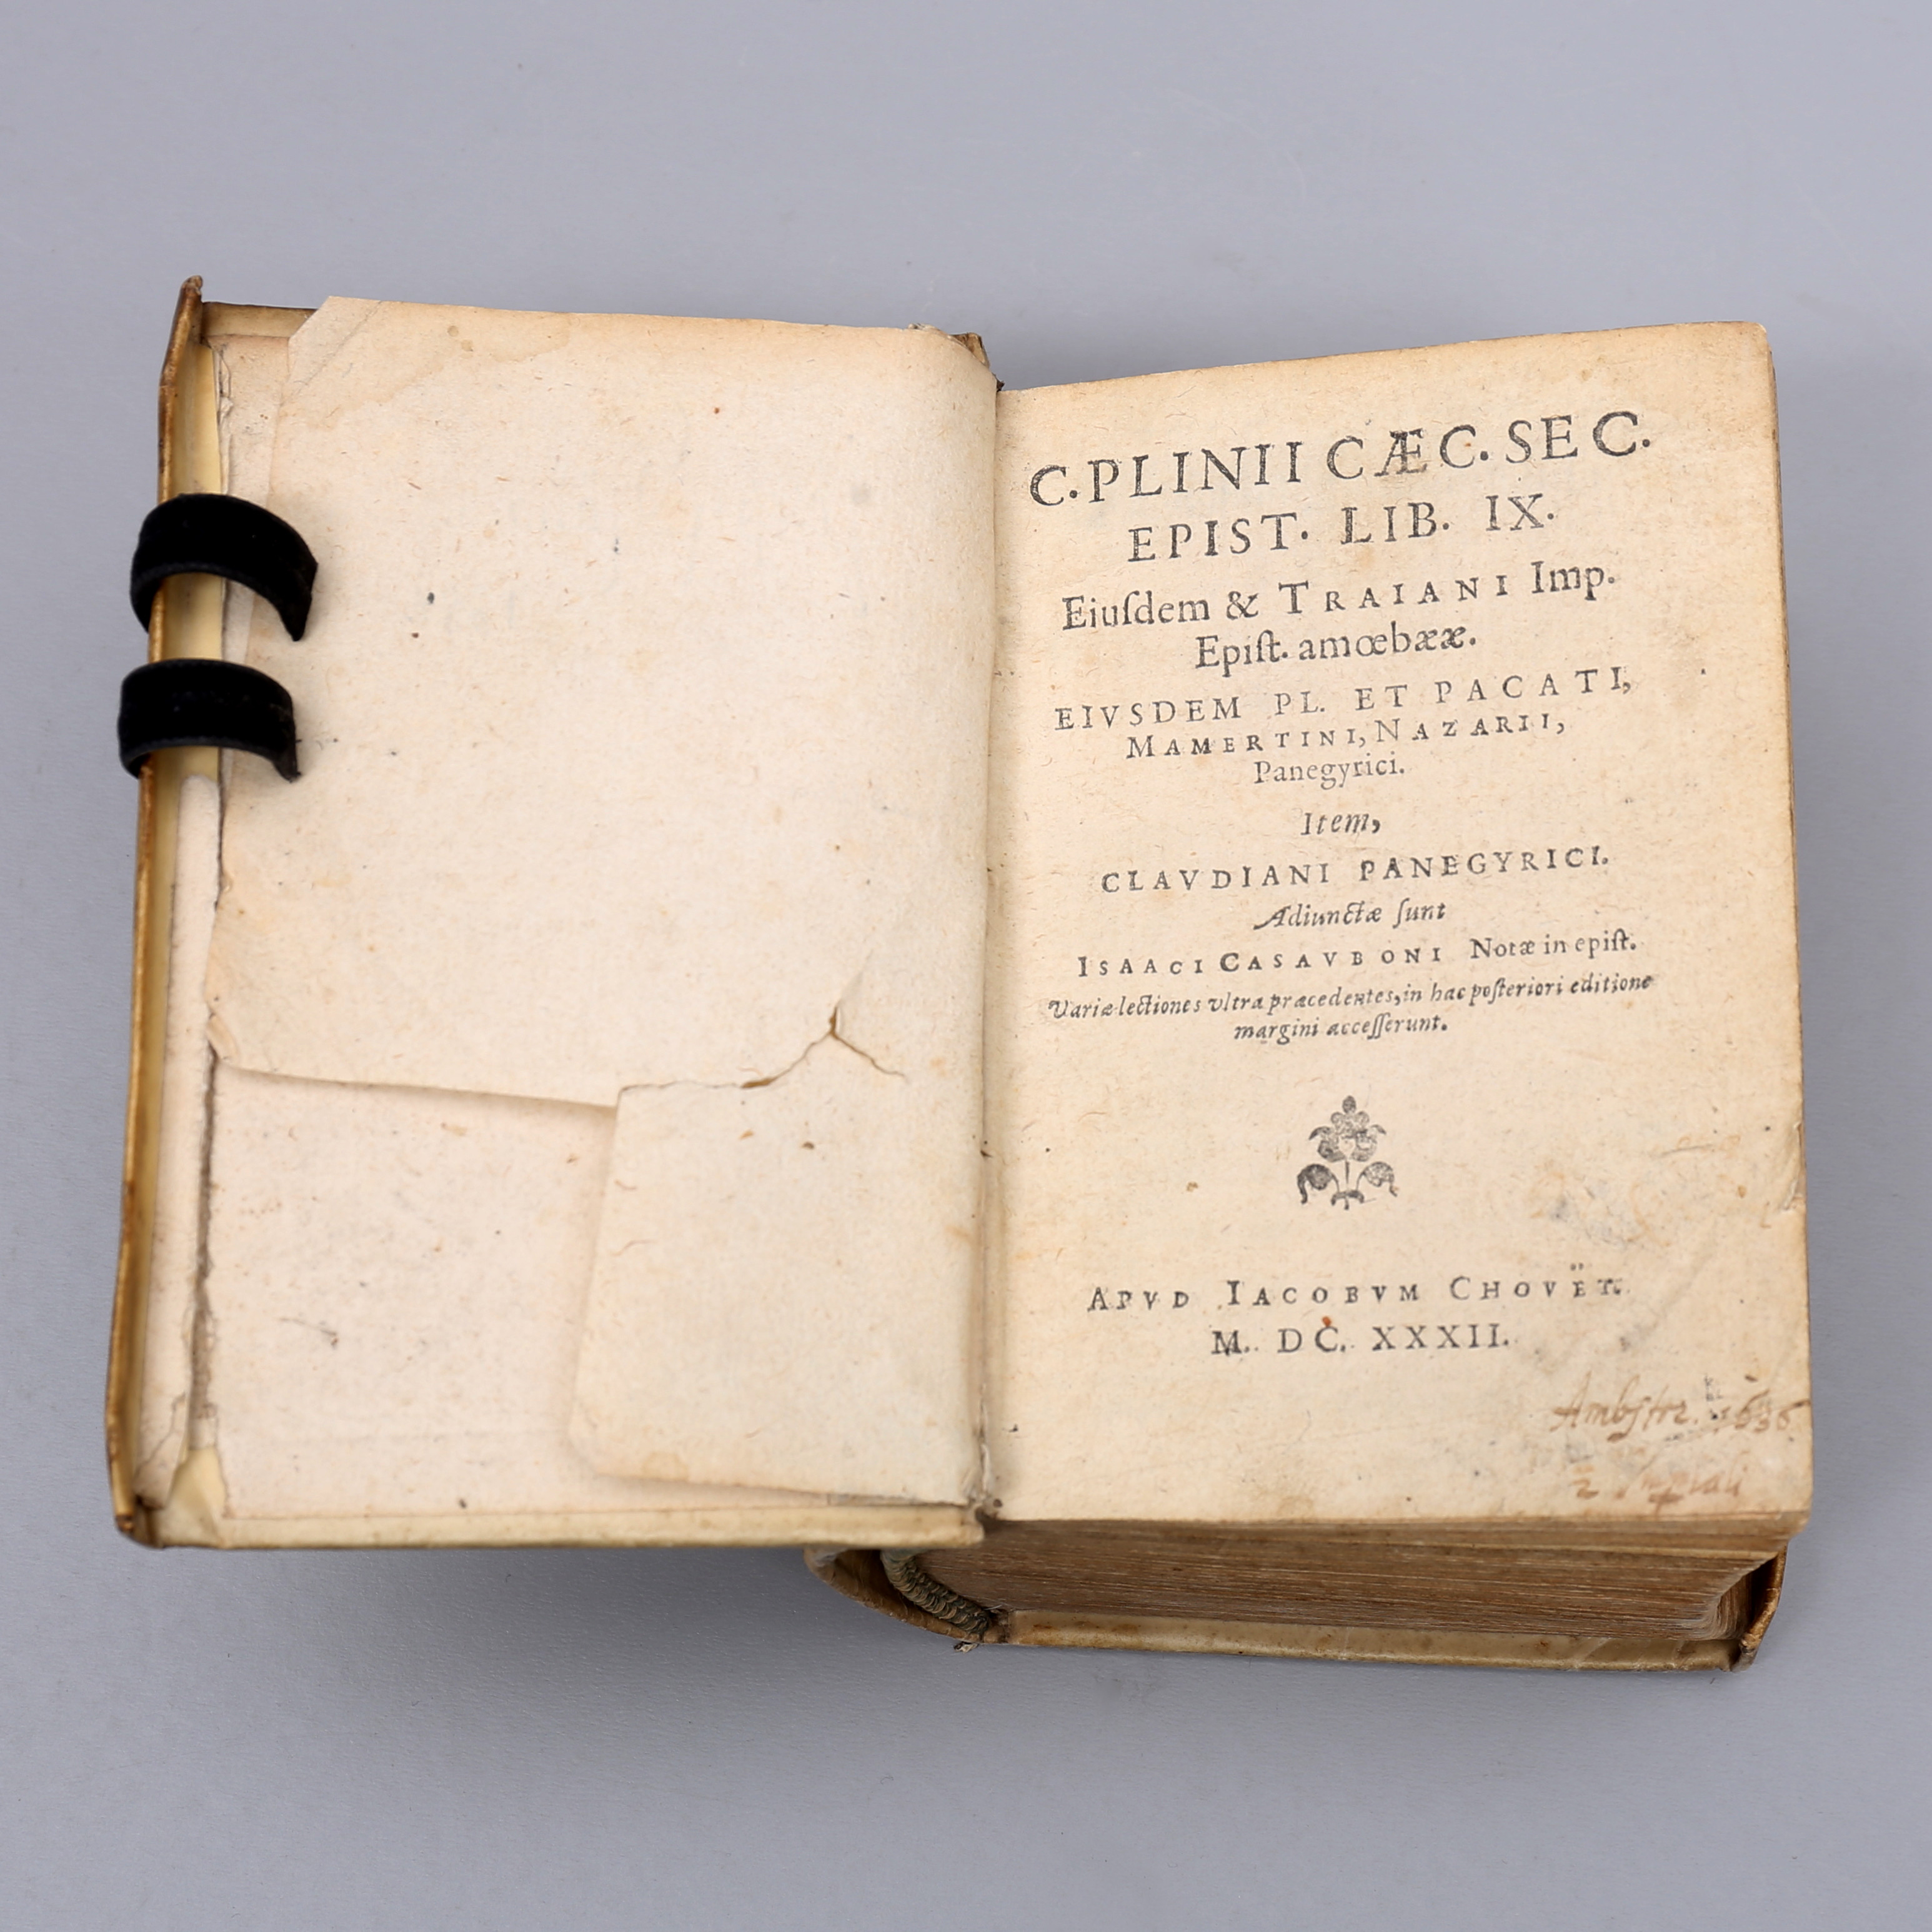 C. PLINII CÆC. SEC.
EPIST. LIB. IX.
Eiuſdem & TRAIANI Imp.
Epiſt. amœbææ.
EIVSDEM PL. ET PACATI,
MAMERTINI, NAZARII,
Panegyrici.
Item,
CLAVDIANI PANEGYRICI.
Adiunctæ ſunt
ISAACI CASAVBONI Notæ in epiſt.
Variæ lectiones vltra præcedentes, in hac poſteriori editione
margini acceſſerunt.
APVD IACOBVM CHOVËT.
M. DC. XXXII.
1636
2